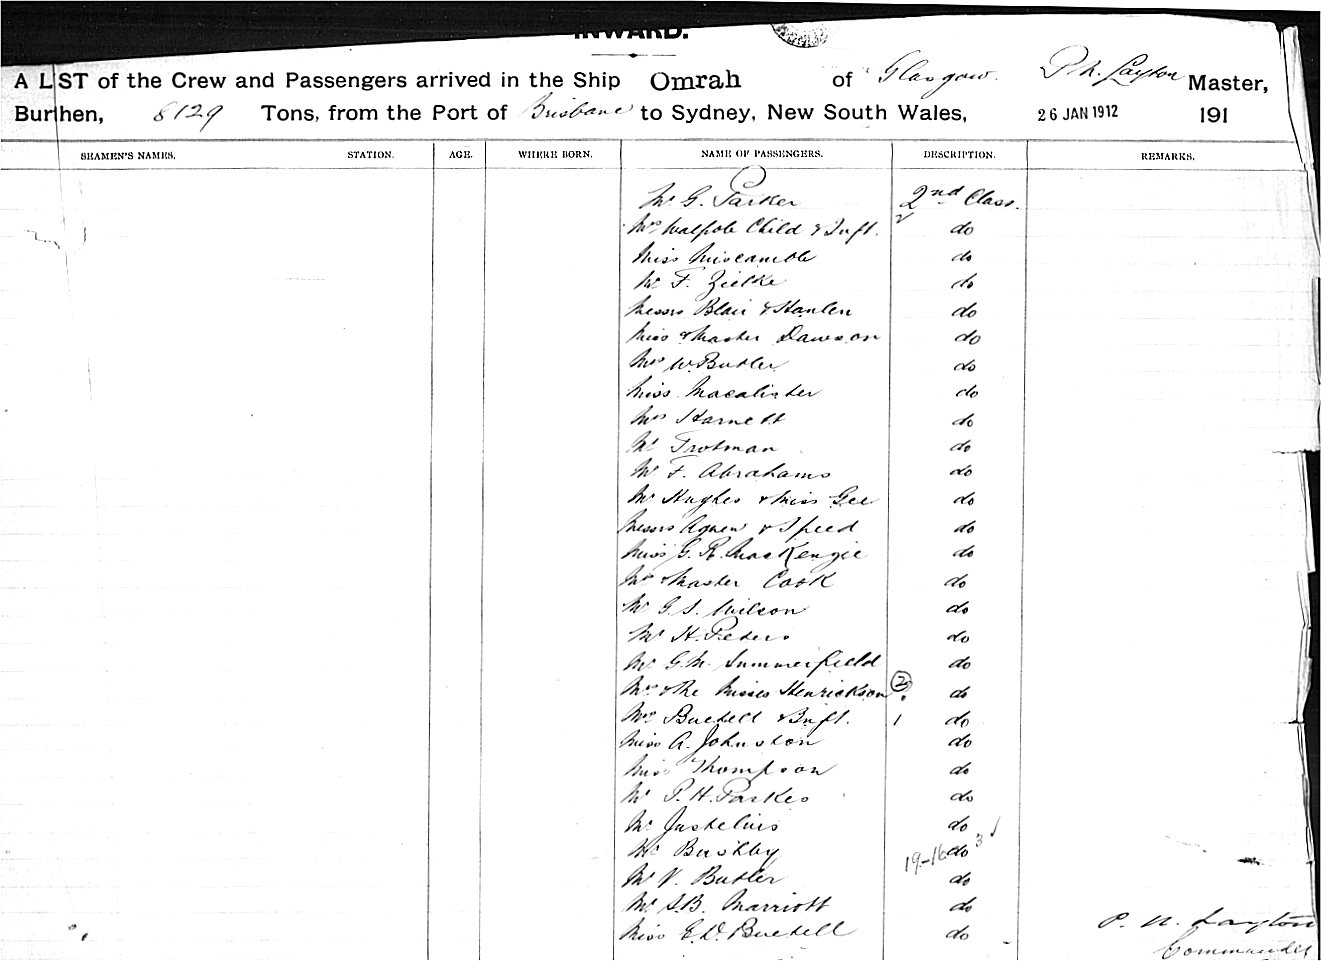 INWARD.
A LIST of the Crew and Passengers arrived in the Ship Omrah of Glasgow. P. N. Layton Master,
Burthen, 8129 Tons, from the Port of Brisbane to Sydney, New South Wales, 26 JAN 1912 191
SEAMEN'S NAMES. STATION. AGE. WHERE BORN. NAME OF PASSENGERS. DESCRIPTION. REMARKS.
Mr G. Parker 2nd Class.
Mrs Walpole Child & Inft. do
Miss Miscamble do
Mr F. Zielke do
Messrs Blair & Hanlen do
Miss & Master Dawson do
Mrs W. Butler do
Miss Macalister do
Mrs Harnett do
Mr Trotman do
Mr F. Abrahams do
Mr Hughes & Miss Gee do
Messrs Agnew & Speed do
Miss G. R. MacKenzie do
Mrs & Master Cook do
Mr G. S. Wilson do
Mr H. Peters do
Mr G. M. Summerfield do
Mrs & The Misses Henrickson 2 do
Mrs Buckell & Inft. 1 do
Miss A. Johnston do
Miss Thompson do
Mr P. H. Parkes do
Mr Justelius do
Mr Bushby 19-16 do 3
Mr V. Butler do
Mr S. B. Marriott do P. N. Layton
Miss E. D. Buckell do Commander